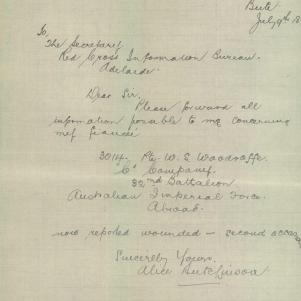 Bute
July 9th 18
To,
The Secretary.
Red Cross Information Bureau.
Adelaide.
Dear Sir.
Please forward all
information possible to me concerning
my fiancé
3014. Pte W. S. Woodroffe.
"C" Company.
32nd Battalion
Australian Imperial Force.
Abroad.
now reported wounded – second occasion
Sincerely Yours.
Alice Hutchinson